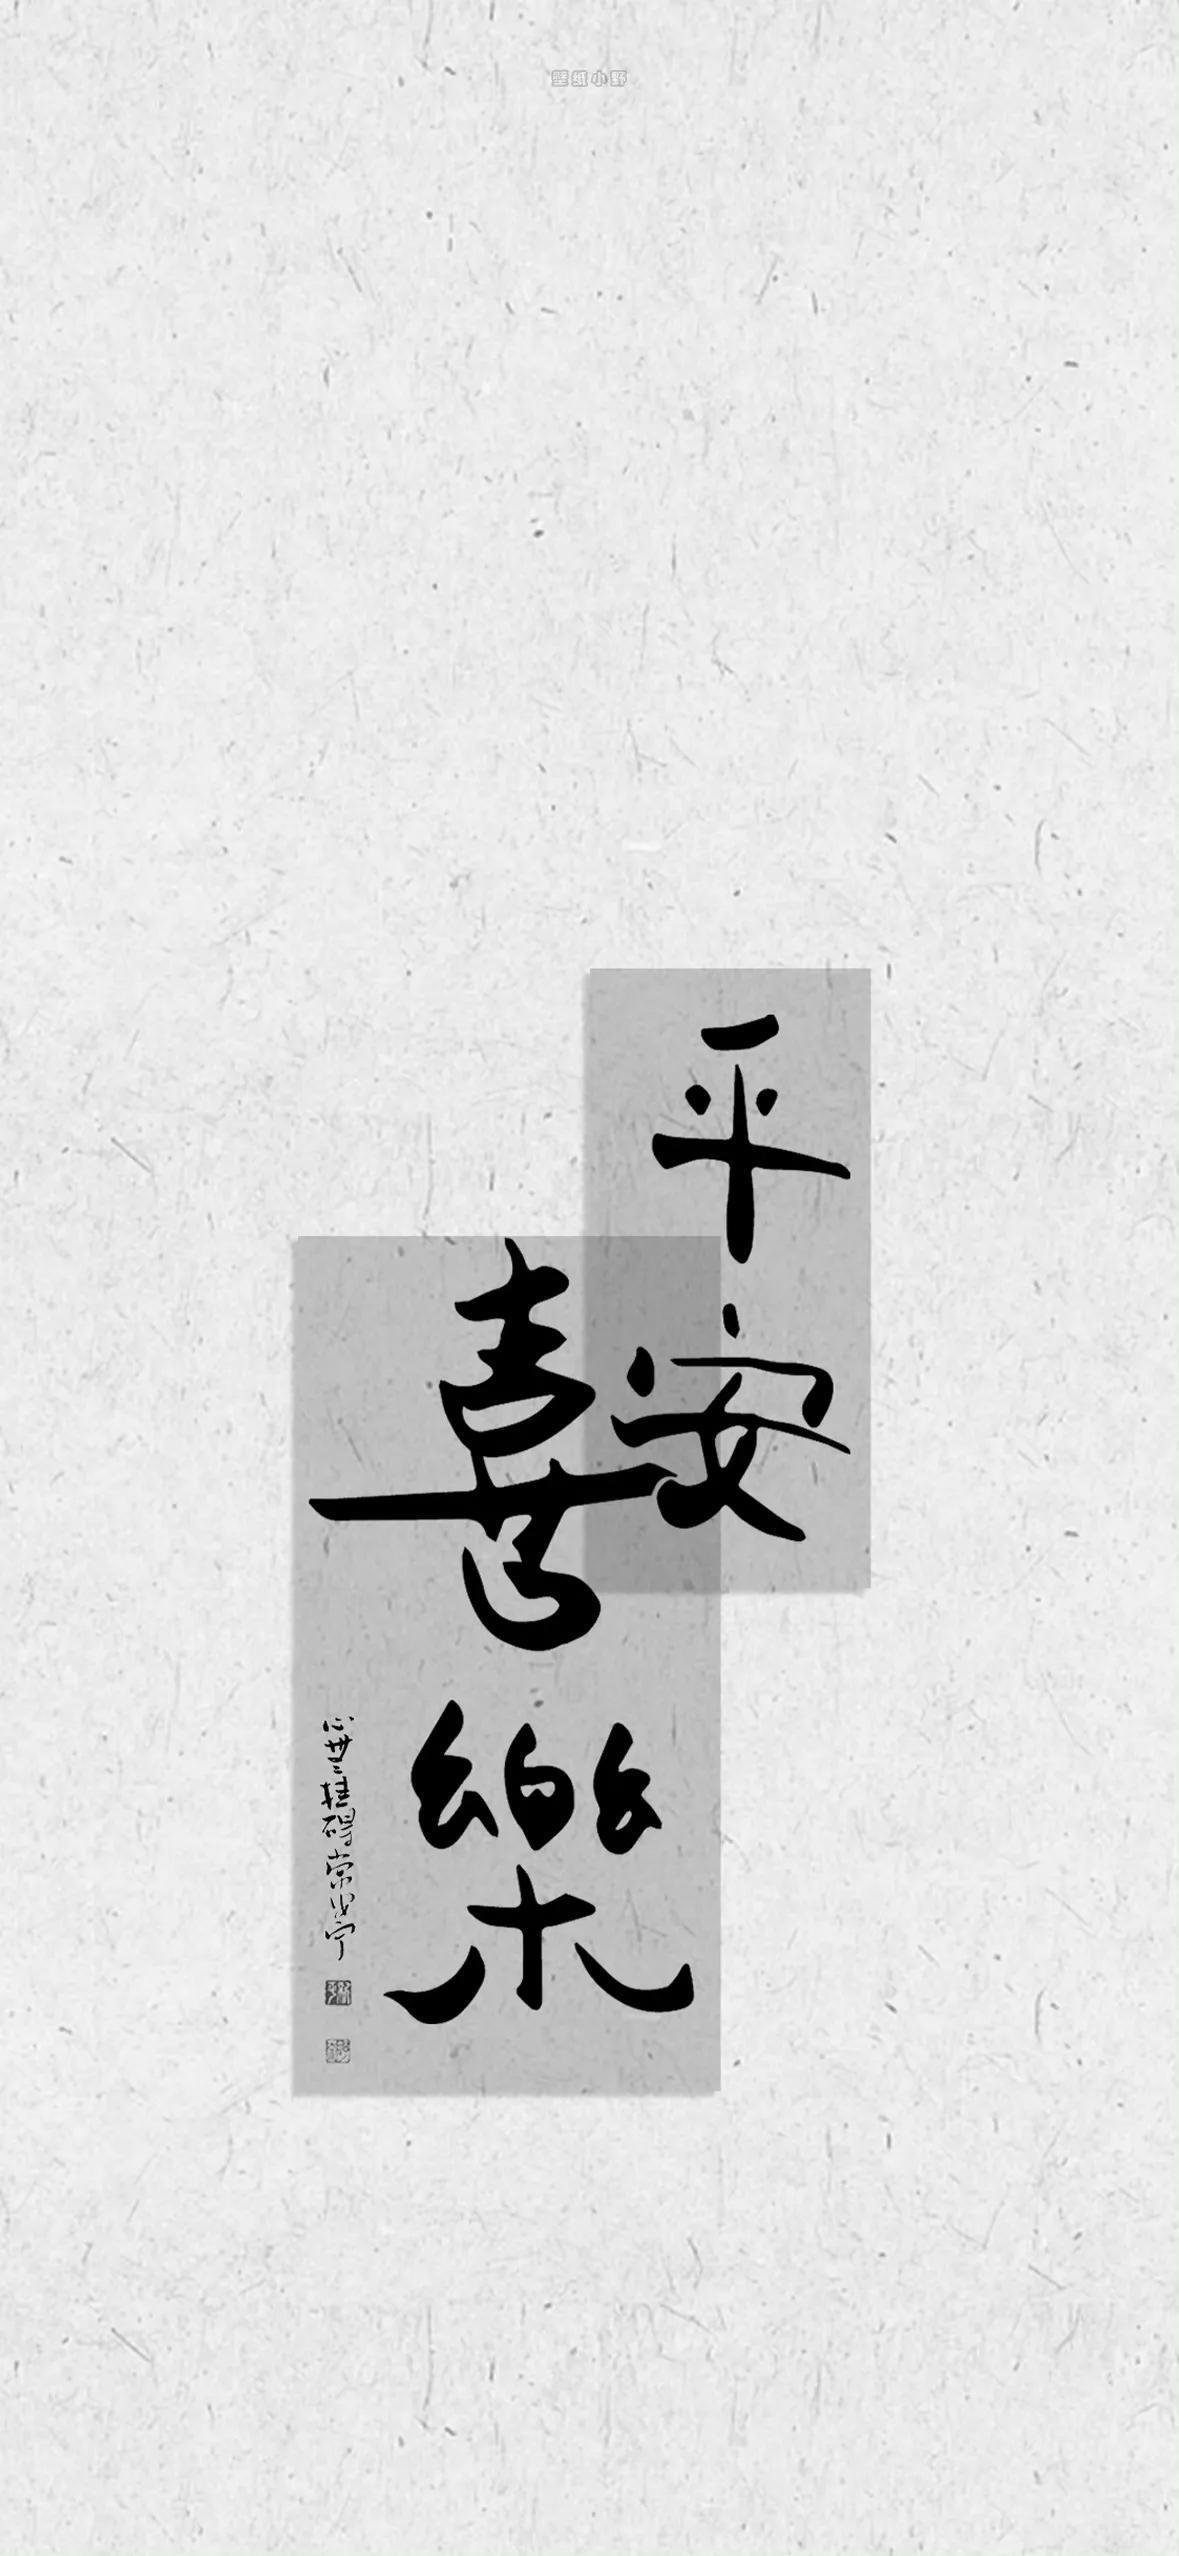 壁纸小野
平安
喜樂
心無挂碍常安宁